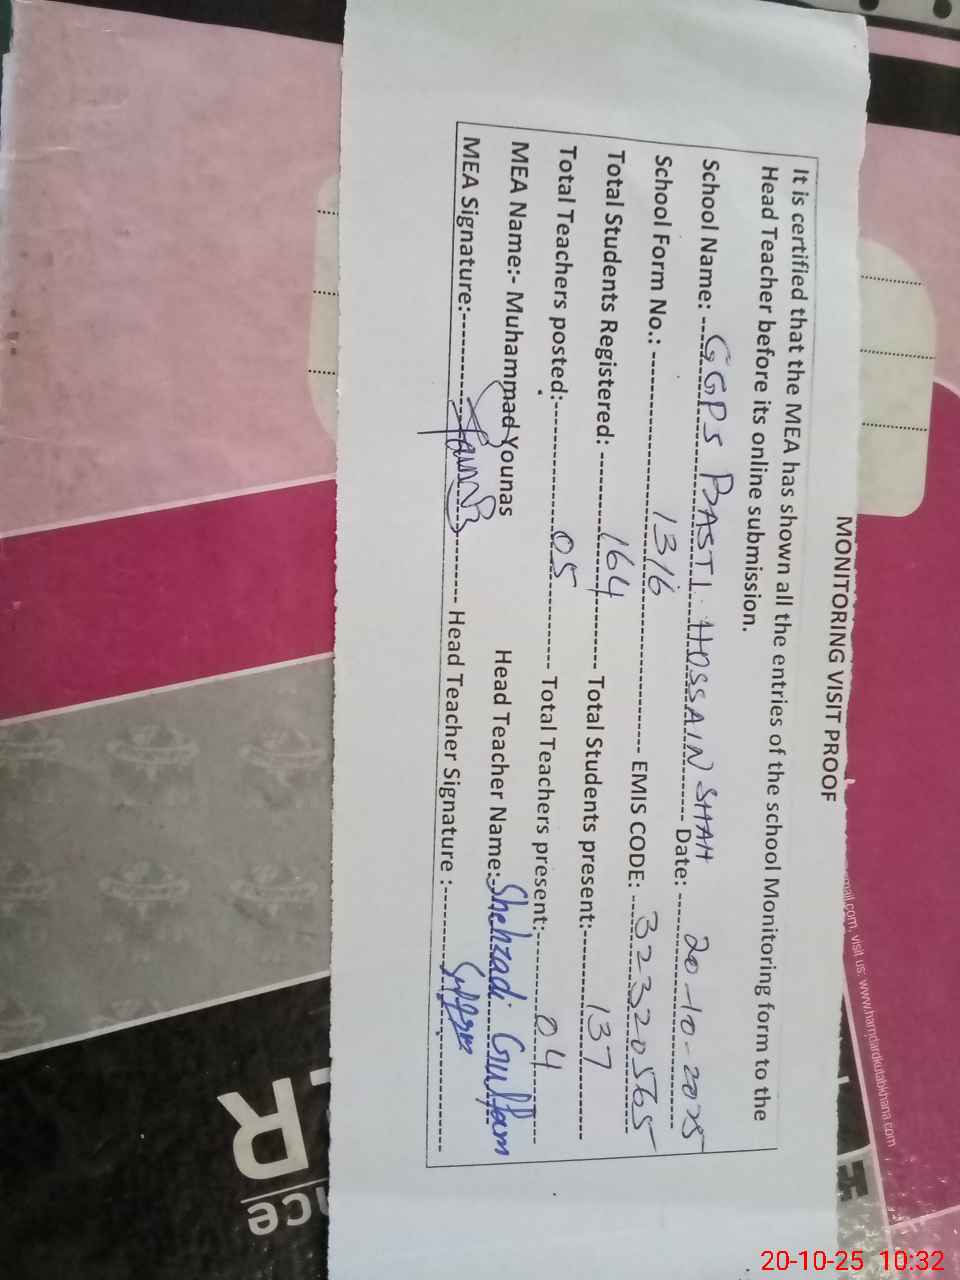 MONITORING VISIT PROOF
It is certified that the MEA has shown all the entries of the school Monitoring form to the
Head Teacher before its online submission.
School Name: GGPS BASTI HOSSAIN SHAH Date: 20-10-2025
School Form No.: 1316 EMIS CODE: 32320565
Total Students Registered: 164 Total Students present: 137
Total Teachers posted: 05 Total Teachers present: 04
MEA Name:- Muhammad Younas Head Teacher Name: Shehzadi Gulfam
MEA Signature: Head Teacher Signature :
visit us: www.hamdardkutabkhana.com
20-10-25 10:32